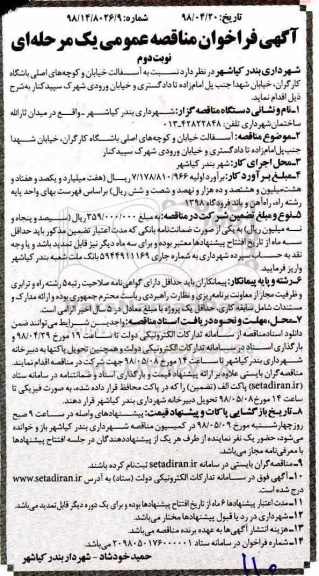 تاریخ: ۹۸/۰۴/۲۰ شماره: ۹۸/۱۴/۸۰۲۶/۹
آگهی فراخوان مناقصه عمومی یک مرحله‌ای
نوبت دوم
شهرداری بندر کیاشهر در نظر دارد نسبت به آسفالت خیابان و کوچه‌های اصلی باشگاه
کارگران، خیابان شهدا جنب پل امام‌زاده تا دادگستری و خیابان ورودی شهرک سپیدکنار به‌شرح
ذیل اقدام نماید.
۱-نام و نشانی دستگاه مناقصه گزار: شهرداری بندر کیاشهر - واقع در میدان ثارالله
ساختمان شهرداری تلفن: ۴۲۸۲۲۸۴۸-۰۱۳
۲-موضوع مناقصه: آسفالت خیابان و کوچه‌های اصلی باشگاه کارگران، خیابان شهدا
جنب پل امام‌زاده تا دادگستری و خیابان ورودی شهرک سپیدکنار
۳-محل اجرای کار: شهر بندر کیاشهر
۴-مبلغ برآورد کار: برآورد اولیه ۷/۱۷۸/۸۱۰/۹۶۶ ریال (هفت میلیارد و یکصد و هفتاد و
هشت میلیون و هشتصد و ده هزار و نهصد و شصت و شش ریال) براساس فهرست بهای واحد پایه
رشته راه، راه‌آهن و باند فرودگاه ۱۳۹۸
۵-نوع و مبلغ تضمین شرکت در مناقصه: به مبلغ ۳۵۹/۰۰۰/۰۰۰ ریال (سیصد و پنجاه و
نه میلیون ریال) به یکی از صورت ضمانتنامه بانکی که مدت اعتبار تضمین مذکور باید حداقل
سه ماه از تاریخ افتتاح پیشنهادها معتبر بوده و برای سه ماه دیگر نیز قابل تمدید باشد و یا وجه
نقد به حساب سپرده شهرداری به شماره جاری ۵۹۴۴۹۱۱۱۶۹ بانک ملت شعبه بندر کیاشهر
واریز فرمایید.
۶-رشته و پایه پیمانکار: پیمانکاران باید حداقل دارای گواهی‌نامه صلاحیت رتبه ۵ رشته راه و ترابری
و ظرفیت مجاز از معاونت برنامه‌ریزی و نظارت راهبردی ریاست محترم جمهوری بوده و ارائه مدارک و
مستندات شامل سابقه کاری، حداقل یک پروژه با مبلغ معادل در ۵ سال اخیر الزامی است.
۷-محل، مهلت و نحوه دریافت اسناد مناقصه: واجدین شرایط می‌توانند ضمن
دانلود اسناد مناقصه از سامانه تدارکات الکترونیکی دولت تا ساعت ۱۹ مورخ ۹۸/۰۴/۲۹ و
بارگذاری اسناد در سامانه تدارکات الکترونیکی دولت و همچنین تحویل پاکتها به دبیرخانه
شهرداری بندر کیاشهر تا ساعت ۱۴ مورخ ۹۸/۰۵/۰۸ جهت شرکت در مناقصه اقدام نمایند.
مناقصه‌گران بایستی علاوه بر ارائه پیشنهاد قیمت و بارگذاری اسناد و ضمانتنامه در سامانه ستاد
(setadiran.ir) پاکت الف (تضمین) را که در پاکت محافظ قرار داده شده، به صورت فیزیکی تا
ساعت ۱۴ مورخ ۹۸/۰۵/۰۸ تحویل دبیرخانه شهرداری بندر کیاشهر قرار دهند.
۸-تاریخ بازگشایی پاکات و پیشنهاد قیمت: پیشنهادهای واصله در ساعت ۹ صبح
روز چهارشنبه مورخ ۹۸/۰۵/۰۹ در کمیسیون مناقصه شهرداری بندر کیاشهر باز و خوانده
می‌شود، حضور یک نفر نماینده از طرف هر یک از پیشنهاددهندگان در جلسه افتتاح پیشنهادها
با معرفی‌نامه مجاز می‌باشد.
۹-مناقصه‌گران بایستی در سامانه setadiran.ir ثبت‌نام کرده باشند.
۱۰-آگهی فوق در سامانه تدارکات الکترونیکی دولت (ستاد) به آدرس www.setadiran.ir
درج شده است.
۱۱-مدت اعتبار پیشنهادها ۶ ماه از تاریخ افتتاح پیشنهادها بوده و برای یک دوره دیگر قابل تمدید می‌باشد.
۱۲-شهرداری در رد یا قبول پیشنهادها مختار می‌باشد.
۱۳-هزینه انتشار آگهی‌ها به عهده برنده مناقصه می‌باشد.
۱۴-شماره فراخوان در سامانه ستاد ۲۰۹۸۰۵۰۱۷۶۰۰۰۰۰۱ می‌باشد.
حمید خودشاد - شهردار بندر کیاشهر